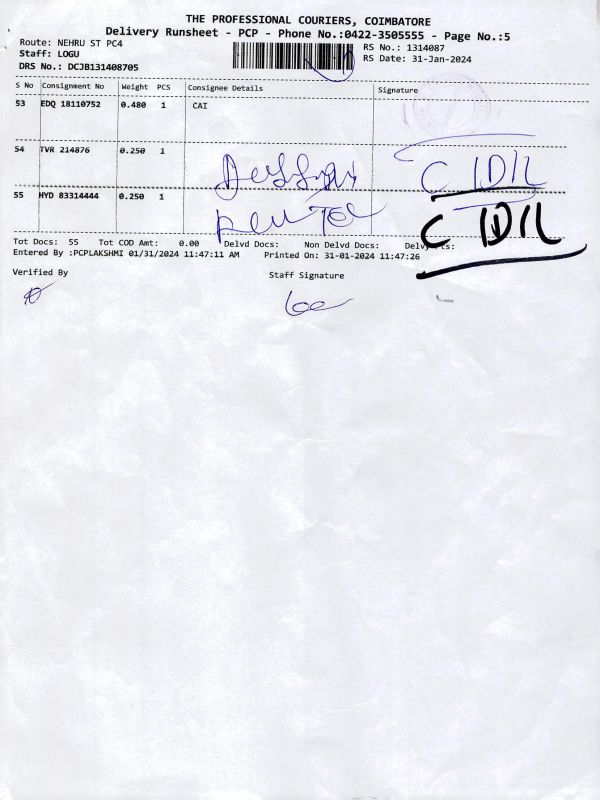 THE PROFESSIONAL COURIERS, COIMBATORE
Delivery Runsheet - PCP - Phone No.:0422-3505555 - Page No.:5
Route: NEHRU ST PC4
Staff: LOGU
DRS No.: DCJB131408705
RS No.: 1314087
RS Date: 31-Jan-2024
S No Consignment No Weight PCS Consignee Details Signature
53 EDQ 18110752 0.480 1 CAI
54 TVR 214876 0.250 1
55 HYD 83314444 0.250 1
Tot Docs: 55 Tot COD Amt: 0.00 Delvd Docs: Non Delvd Docs:
Entered By :PCPLAKSHMI 01/31/2024 11:47:11 AM Printed On: 31-01-2024 11:47:26
Verified By Staff Signature